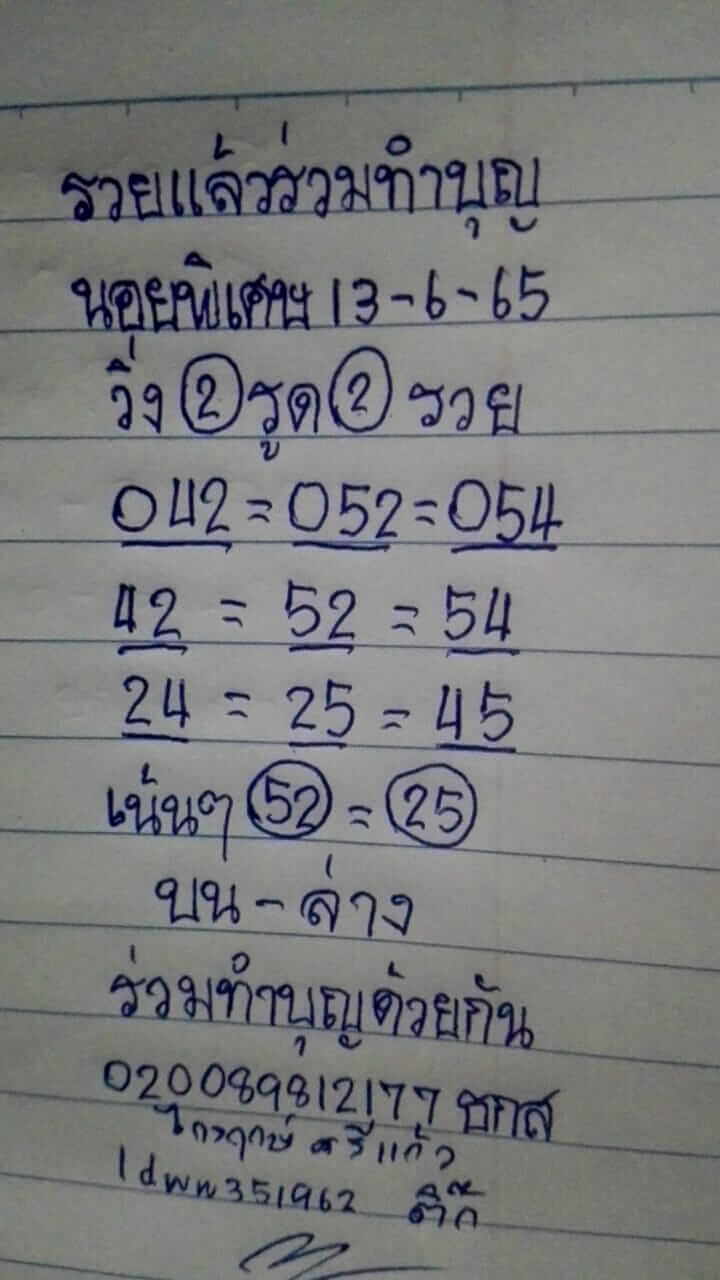 รวยแล้วร่วมทำบุญ
นอยพิเศษ 13-6-65
วิ่ง 2 รูด 2 รวย
042 = 052 = 054
42 = 52 = 54
24 = 25 = 45
เน้นๆ 52 = 25
บน - ล่าง
ร่วมทำบุญด้วยกัน
020089812177 ธกส
ศรีแก้ว
351962